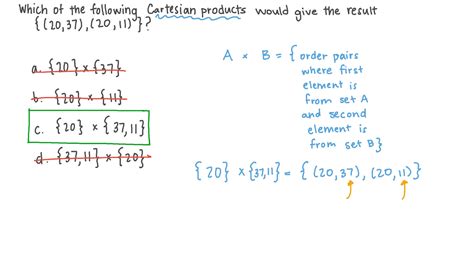 Which of the following Cartesian products would give the result
{(20,37),(20,11)}?
a. {20} × {37}
b. {20} × {11}
c. {20} × {37,11}
d. {37,11} × {20}
A × B = {order pairs
where first
element is
from set A
and second
element is
from set B}
{20} × {37,11} = {(20,37),(20,11)}